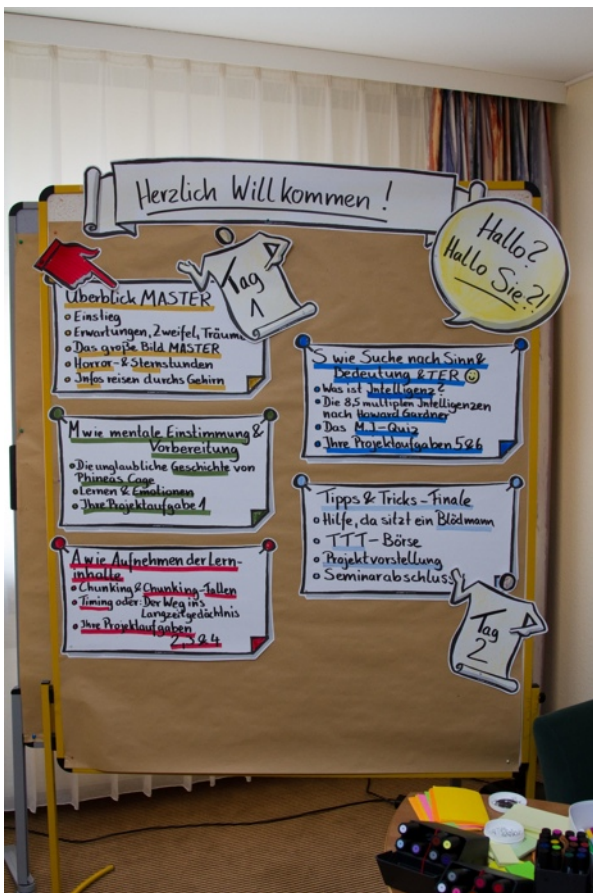 Herzlich Willkommen!
Hallo?
Hallo Sie?!
Tag
1
Überblick MASTER
Einstieg
Erwartungen, Zweifel, Träume
Das große Bild MASTER
Horror- & Sternstunden
Infos reisen durchs Gehirn
M wie mentale Einstimmung &
Vorbereitung
Die unglaubliche Geschichte von
Phineas Gage
Lernen & Emotionen
Ihre Projektaufgabe 1
A wie Aufnehmen der Lern-
inhalte
Chunking & Chunking-Fallen
Timing oder: Der Weg ins
Langzeitgedächtnis
Ihre Projektaufgaben
2, 3 & 4
S wie Suche nach Sinn &
Bedeutung & TER
Was ist Intelligenz?
Die 8,5 multiplen Intelligenzen
nach Howard Gardner
Das M.I.-Quiz
Ihre Projektaufgaben 5 & 6
Tipps & Tricks - Finale
Hilfe, da sitzt ein Blödmann
TTT-Börse
Projektvorstellung
Seminarabschluss
Tag
2